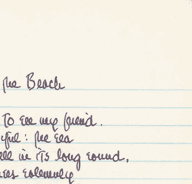 the Beach
to see my friend.
yful: the sea
ell in its long sound,
res solemnly